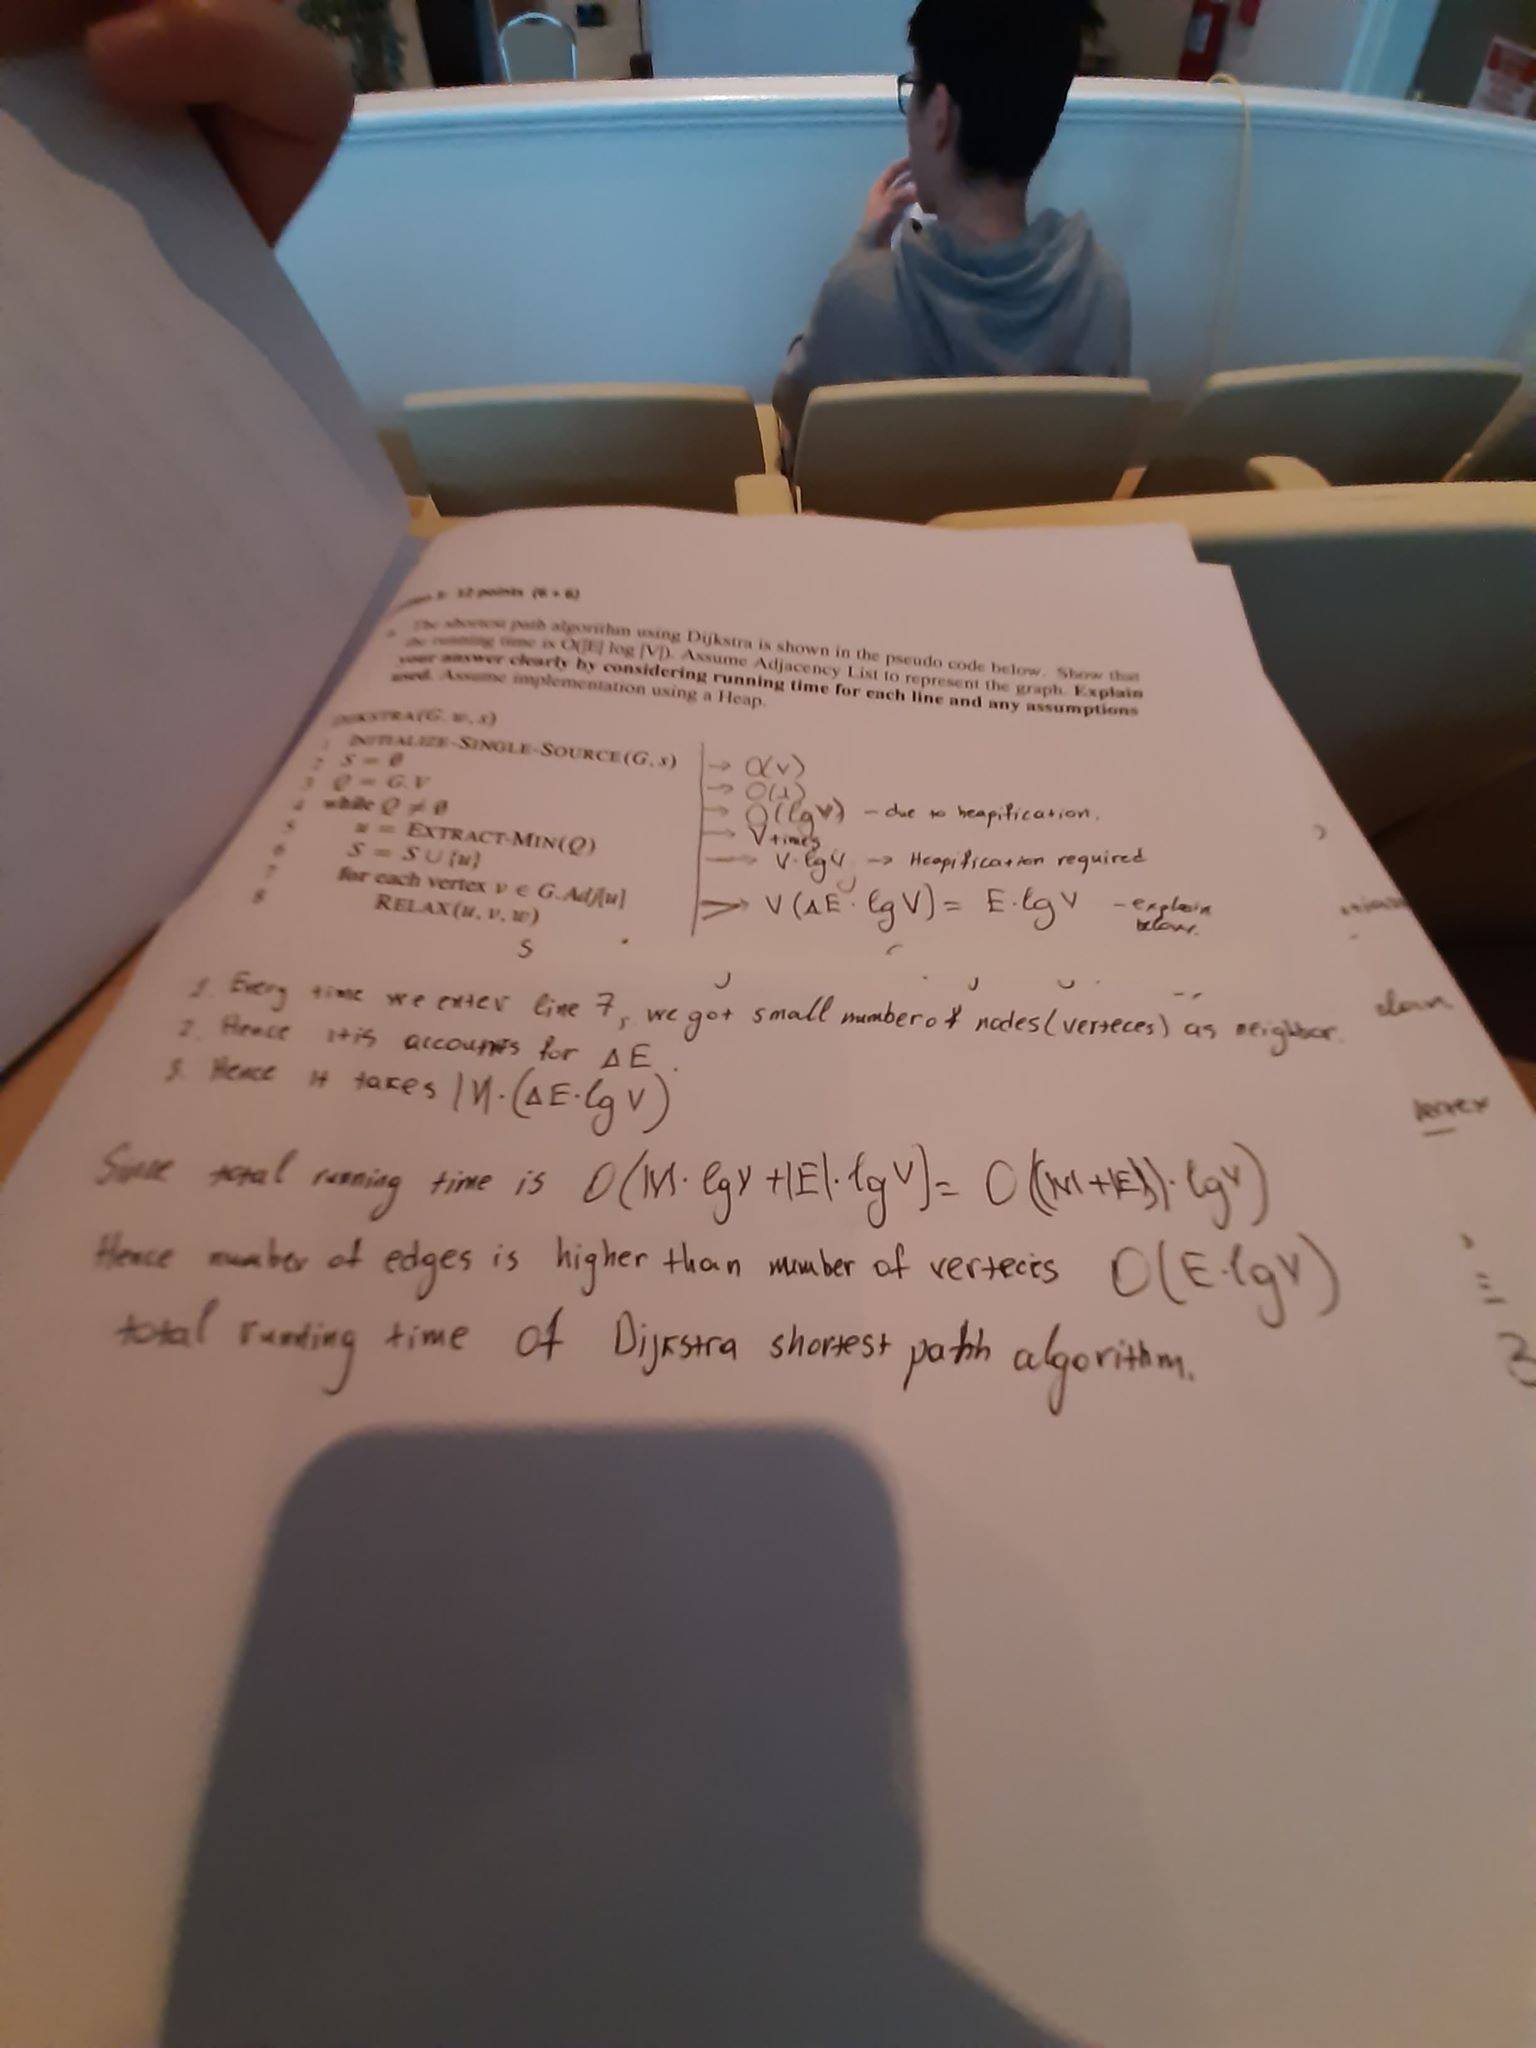 12 points (6 + 6)
The shortest path algorithm using Dijkstra is shown in the pseudo code below. Show that
the running time is O(|E| log |V|). Assume Adjacency List to represent the graph. Explain
your answer clearly by considering running time for each line and any assumptions
used. Assume implementation using a Heap.
DIJKSTRA(G, w, s)
1 INITIALIZE-SINGLE-SOURCE(G, s) → O(V)
2 S = ∅ → O(1)
3 Q = G.V → O(lg V) - due to heapification.
4 while Q ≠ ∅ → V times
5 u = EXTRACT-MIN(Q) → V·lg V → Heapification required
6 S = S ∪ {u}
7 for each vertex v ∈ G.Adj[u] → V(ΔE·lg V) = E·lg V - explain
8 RELAX(u, v, w) below.
S
1. Every time we enter line 7, we got small number of nodes (verteces) as neighbor.
2. Hence it is accounts for ΔE.
3. Hence it takes |V|·(ΔE·lg V)
Since total running time is O(|V|·lg V + |E|·lg V) = O((|V|+|E|)·lg V)
Hence number of edges is higher than number of verteces O(E·lg V)
total running time of Dijkstra shortest path algorithm.
vertex
=
3